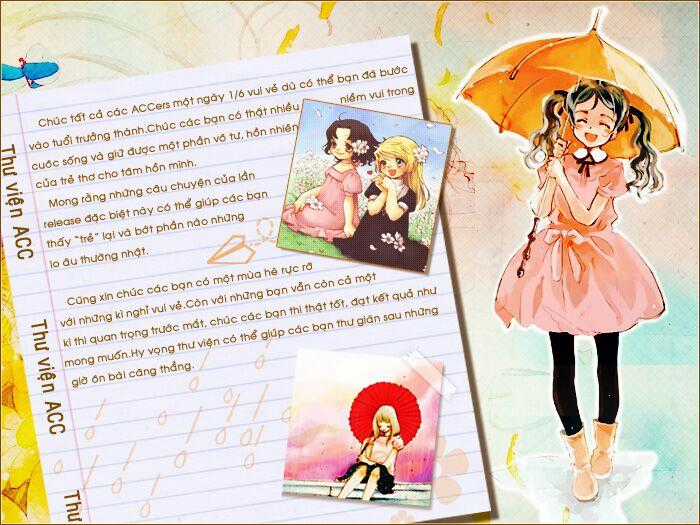 Chúc tất cả các ACCers một ngày 1/6 vui vẻ dù có thể bạn đã bước
vào tuổi trưởng thành.Chúc các bạn có thật nhiều niềm vui trong
cuôc sống và giữ được một phần vô tư, hồn nhiên
của trẻ thơ cho tâm hồn mình.
Mong rằng những câu chuyện của lần
release đặc biệt này có thể giúp các bạn
thấy "trẻ" lại và bớt phần nào những
lo âu thường nhật.
Cũng xin chúc các bạn có một mùa hè rực rỡ
với những kì nghỉ vui vẻ.Còn với những bạn vẫn còn cả một
kì thi quan trọng trước mắt, chúc các bạn thi thật tốt, đạt kết quả như
mong muốn.Hy vọng thư viện có thể giúp các bạn thư giãn sau những
giờ ôn bài căng thẳng.
Thư viện ACC
Thư viện ACC
Thư